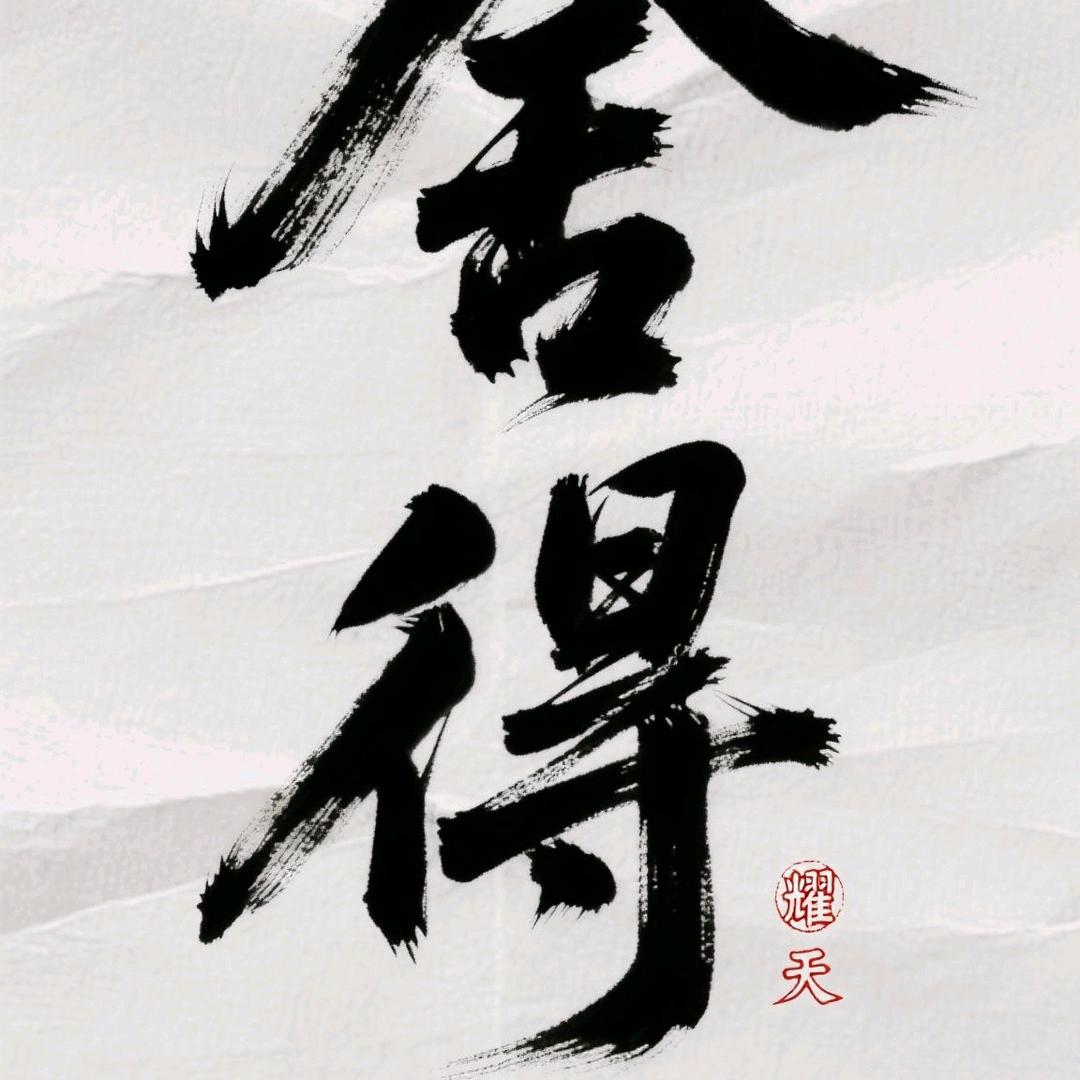 舍
得
耀
天